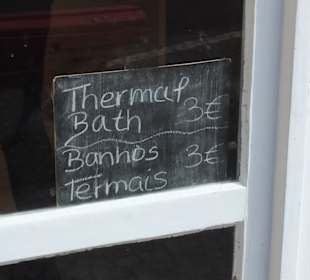 Thermal
Bath 3€
Banhos 3€
Termais